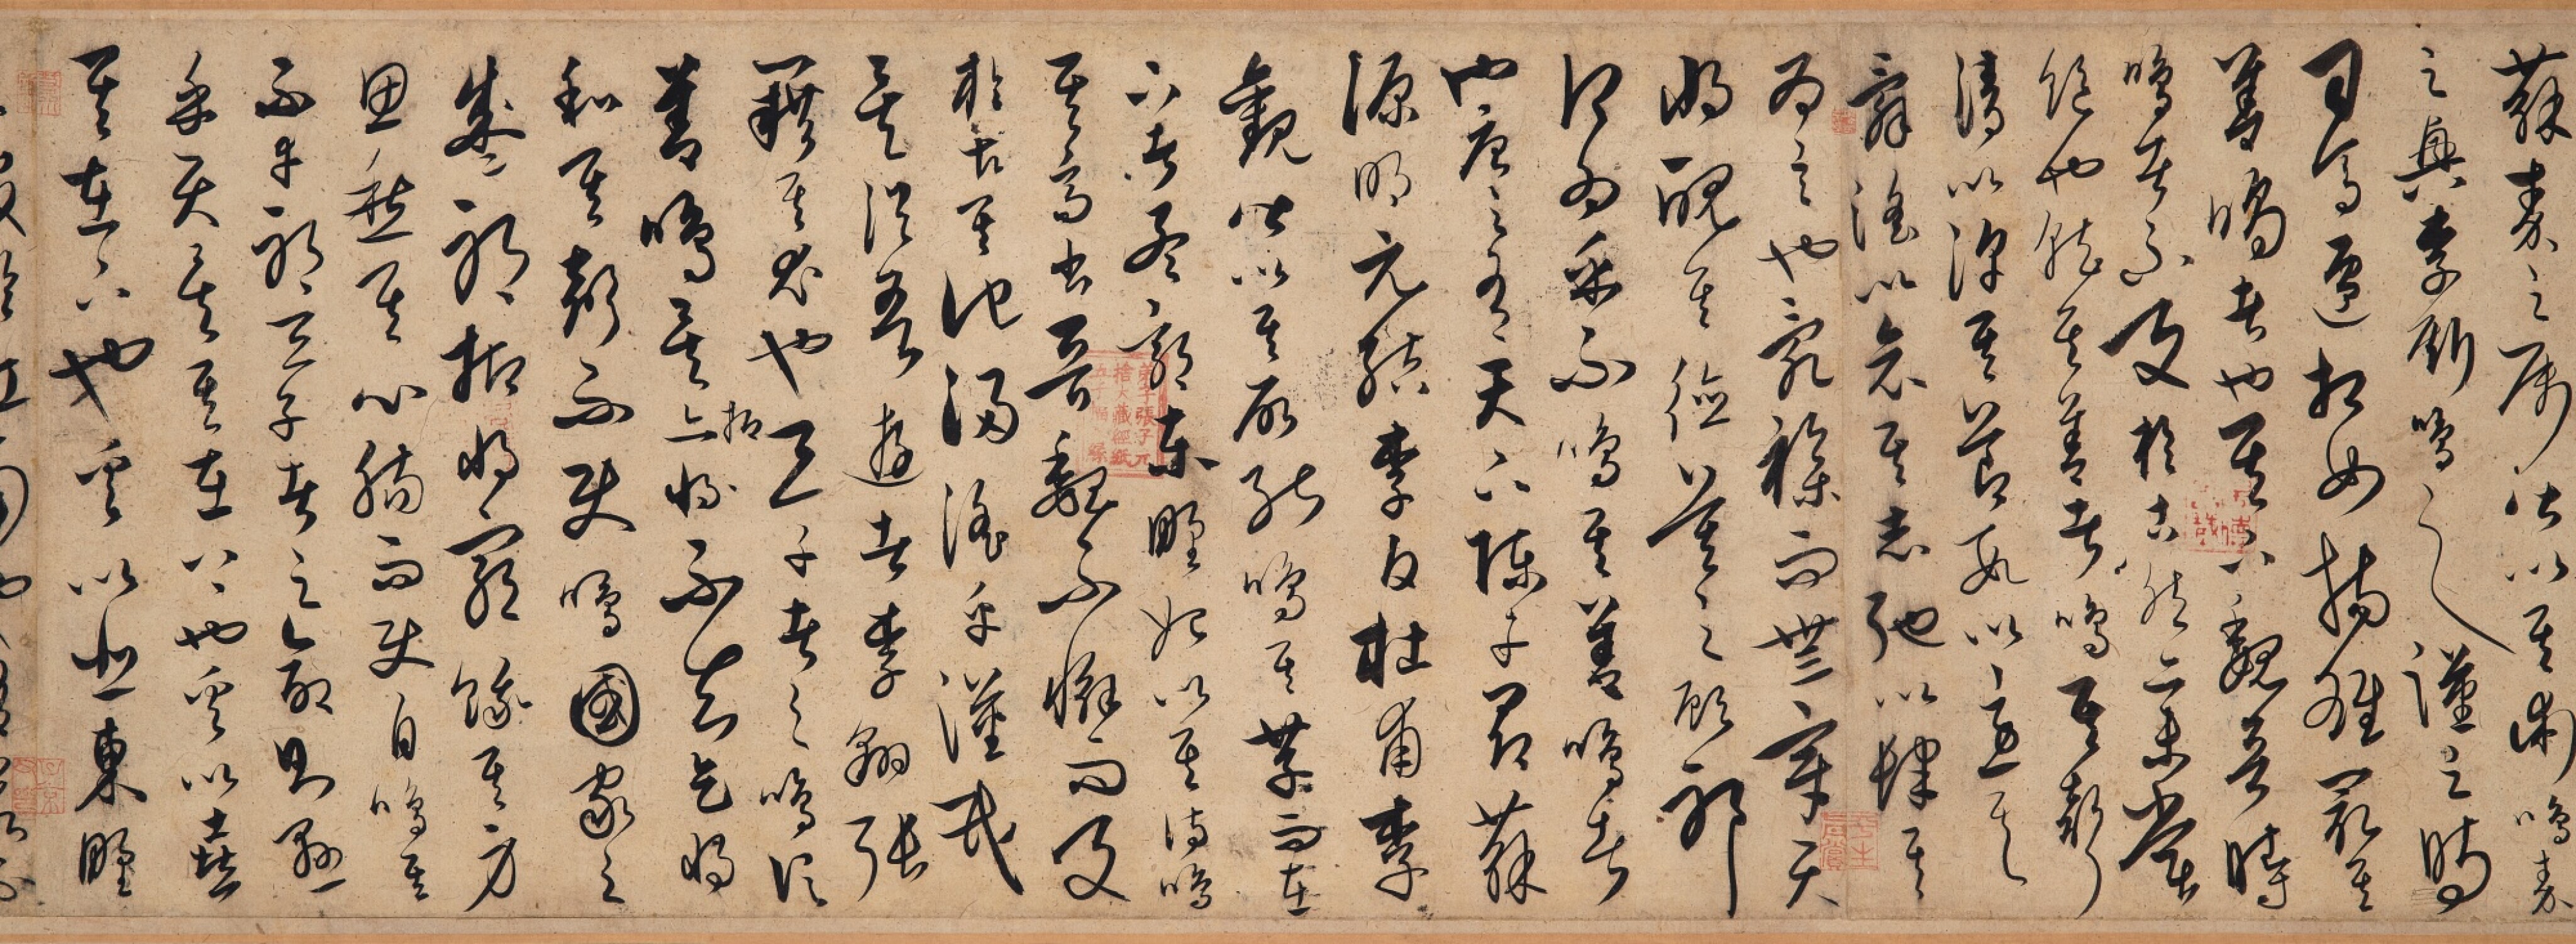 蘇秦之屬皆以其術鳴秦
之興李斯鳴之漢之時
司馬遷相如揚雄最其
善鳴者也其下魏晉時
鳴者不及於古然亦未嘗
絕也然其善者鳴其聲
清以浮其節數以急其
辭淫以哀其志弛以肆其
為言也亂雜而無章天
將醜其德莫之顧邪
何為乎不鳴其善鳴者
也唐之有天下陳子昂蘇
源明元結李白杜甫李
觀皆以其所能鳴其業而在
下者孟郊東野始以其詩鳴
其高出晉魏不懈而及
於古其他浸淫乎漢氏
矣從吾遊者李翱張
籍其尤也三子者之鳴信
善鳴矣抑不知天將
和其聲而使鳴國家之
盛邪抑將窮餓其身
思愁其心腸而使自鳴其
不幸邪三子者之命則懸
乎天矣其在上也奚以喜
其在下也奚以悲東野
弟子張子元
捨大藏經紙